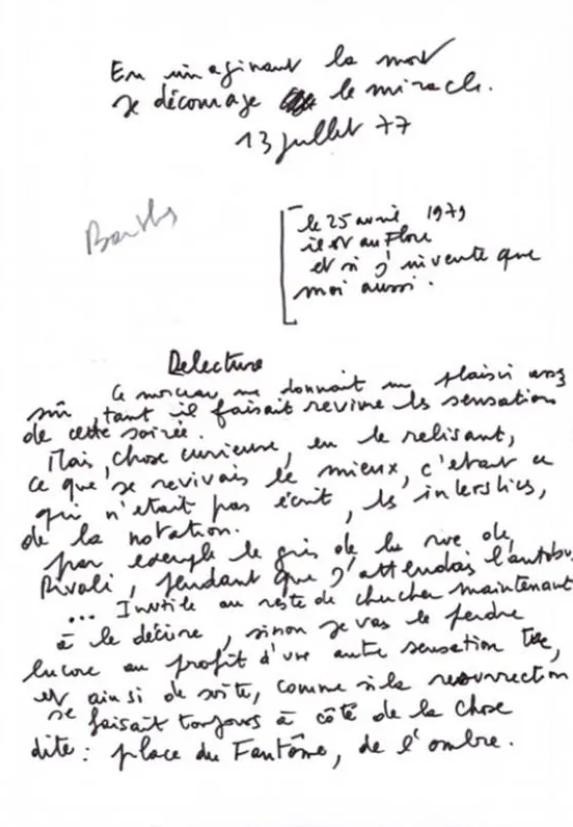 En imaginant la mort
je décourage le miracle.
13 juillet 77
Barthes
le 25 avril 1979
il est au Flore
et si j'invente que
moi aussi.
Relecture
Ce morceau me donnait un plaisir assez
sûr, tant il faisait revivre les sensations
de cette soirée.
Mais, chose curieuse, en le relisant,
ce que je revivais le mieux, c'était ce
qui n'était pas écrit, les interstices,
de la notation.
par exemple le gris de la rue de
Rivoli, pendant que j'attendais l'autobus,
... Inutile au reste de chercher maintenant
à le décrire, sinon je vas le perdre
encore au profit d'une autre sensation tue,
et ainsi de suite, comme si la résurrection
se faisait toujours à côté de la chose
dite : place du Fantôme, de l'ombre.